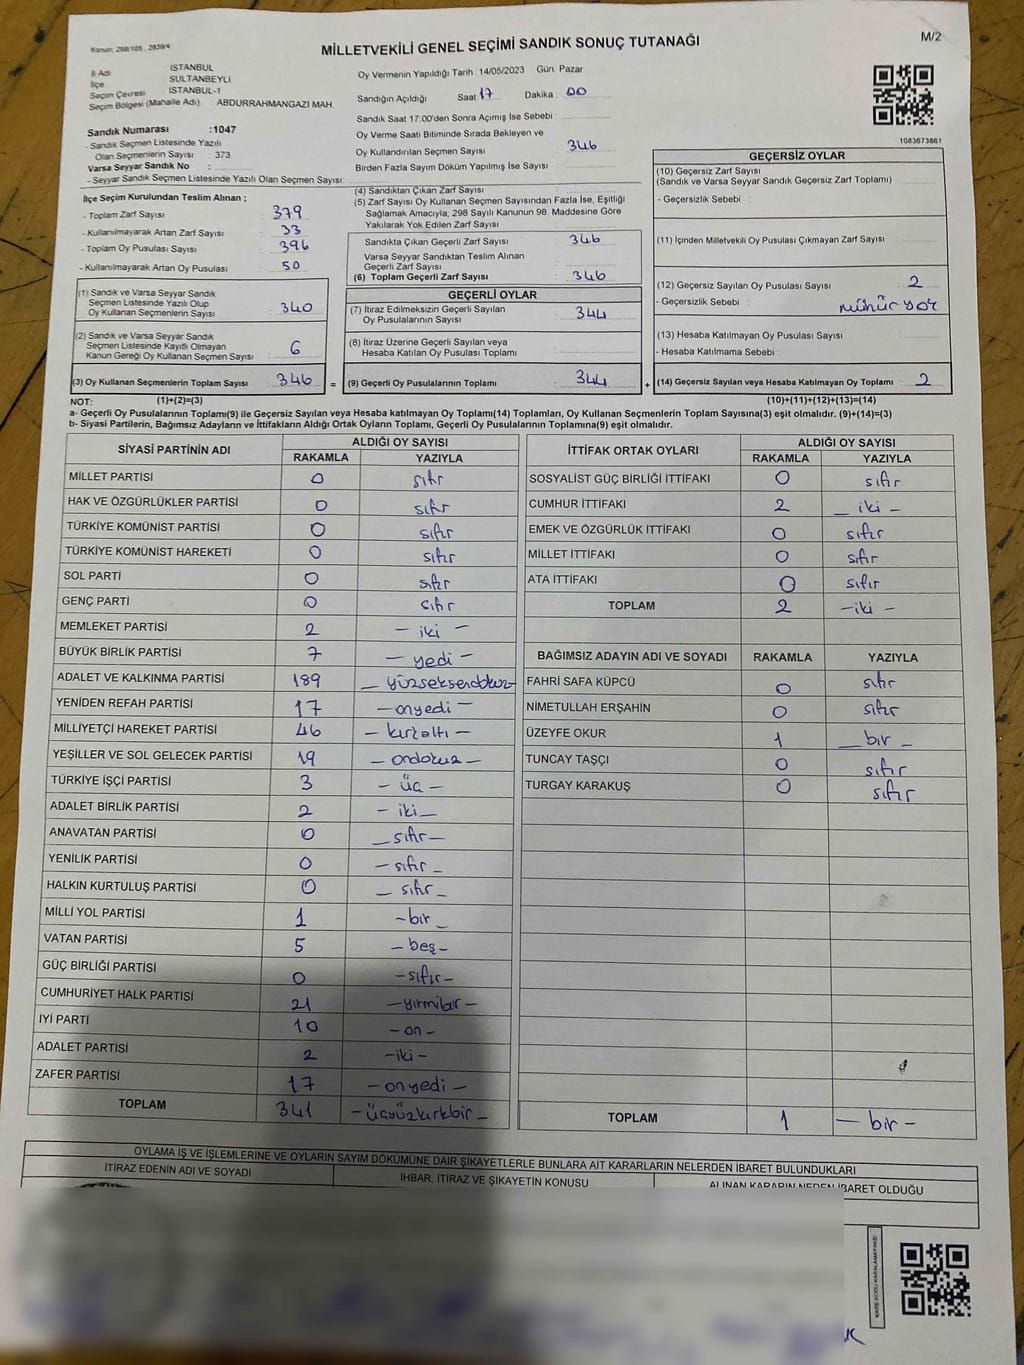 Kanun: 298/105, 2839/4
MİLLETVEKİLİ GENEL SEÇİMİ SANDIK SONUÇ TUTANAĞI
M/2
İl Adı : İSTANBUL
İlçe : SULTANBEYLİ
Seçim Çevresi : İSTANBUL-1
Seçim Bölgesi (Mahalle Adı) : ABDURRAHMANGAZİ MAH.
Oy Vermenin Yapıldığı Tarih : 14/05/2023 Gün : Pazar
Sandığın Açıldığı Saat : 17 Dakika : 00
Sandık Saat 17:00'den Sonra Açımış İse Sebebi :
Oy Verme Saati Bitiminde Sırada Bekleyen ve
Oy Kullandırılan Seçmen Sayısı : 346
Birden Fazla Sayım Döküm Yapılmış İse Sayısı :
1083673861
Sandık Numarası : 1047
- Sandık Seçmen Listesinde Yazılı
Olan Seçmenlerin Sayısı : 373
Varsa Seyyar Sandık No :
- Seyyar Sandık Seçmen Listesinde Yazılı Olan Seçmen Sayısı:
İlçe Seçim Kurulundan Teslim Alınan ;
- Toplam Zarf Sayısı : 379
- Kullanılmayarak Artan Zarf Sayısı : 33
- Toplam Oy Pusulası Sayısı : 396
- Kullanılmayarak Artan Oy Pusulası : 50
(1) Sandık ve Varsa Seyyar Sandık
Seçmen Listesinde Yazılı Olup
Oy Kullanan Seçmenlerin Sayısı : 340
(2) Sandık ve Varsa Seyyar Sandık
Seçmen Listesinde Kayıtlı Olmayan
Kanun Gereği Oy Kullanan Seçmen Sayısı : 6
(3) Oy Kullanan Seçmenlerin Toplam Sayısı : 346 =
(4) Sandıktan Çıkan Zarf Sayısı :
(5) Zarf Sayısı Oy Kullanan Seçmen Sayısından Fazla İse, Eşitliği
Sağlamak Amacıyla; 298 Sayılı Kanunun 98. Maddesine Göre
Yakılarak Yok Edilen Zarf Sayısı :
Sandıkta Çıkan Geçerli Zarf Sayısı : 346
Varsa Seyyar Sandıktan Teslim Alınan
Geçerli Zarf Sayısı :
(6) Toplam Geçerli Zarf Sayısı : 346
GEÇERLİ OYLAR
(7) İtiraz Edilmeksizin Geçerli Sayılan
Oy Pusulalarının Sayısı : 344
(8) İtiraz Üzerine Geçerli Sayılan veya
Hesaba Katılan Oy Pusulası Toplamı :
(9) Geçerli Oy Pusulalarının Toplamı : 344 +
GEÇERSİZ OYLAR
(10) Geçersiz Zarf Sayısı
(Sandık ve Varsa Seyyar Sandık Geçersiz Zarf Toplamı) :
- Geçersizlik Sebebi :
(11) İçinden Milletvekili Oy Pusulası Çıkmayan Zarf Sayısı :
(12) Geçersiz Sayılan Oy Pusulası Sayısı : 2
- Geçersizlik Sebebi : mühür yok
(13) Hesaba Katılmayan Oy Pusulası Sayısı :
- Hesaba Katılmama Sebebi :
(14) Geçersiz Sayılan veya Hesaba Katılmayan Oy Toplamı : 2
NOT: (1)+(2)=(3) (10)+(11)+(12)+(13)=(14)
a- Geçerli Oy Pusulalarının Toplamı(9) ile Geçersiz Sayılan veya Hesaba katılmayan Oy Toplamı(14) Toplamları, Oy Kullanan Seçmenlerin Toplam Sayısına(3) eşit olmalıdır. (9)+(14)=(3)
b- Siyasi Partilerin, Bağımsız Adayların ve İttifakların Aldığı Ortak Oyların Toplamı, Geçerli Oy Pusulalarının Toplamına(9) eşit olmalıdır.
SİYASİ PARTİNİN ADI ALDIĞI OY SAYISI
RAKAMLA YAZIYLA
MİLLET PARTİSİ 0 sıfır
HAK VE ÖZGÜRLÜKLER PARTİSİ 0 sıfır
TÜRKİYE KOMÜNİST PARTİSİ 0 sıfır
TÜRKİYE KOMÜNİST HAREKETİ 0 sıfır
SOL PARTİ 0 sıfır
GENÇ PARTİ 0 sıfır
MEMLEKET PARTİSİ 2 - iki -
BÜYÜK BİRLİK PARTİSİ 7 - yedi -
ADALET VE KALKINMA PARTİSİ 189 - yüzseksendokuz
YENİDEN REFAH PARTİSİ 17 - onyedi -
MİLLİYETÇİ HAREKET PARTİSİ 46 - kırkaltı -
YEŞİLLER VE SOL GELECEK PARTİSİ 19 - ondokuz -
TÜRKİYE İŞÇİ PARTİSİ 3 - üç -
ADALET BİRLİK PARTİSİ 2 - iki -
ANAVATAN PARTİSİ 0 - sıfır -
YENİLİK PARTİSİ 0 - sıfır -
HALKIN KURTULUŞ PARTİSİ 0 - sıfır -
MİLLİ YOL PARTİSİ 1 - bir -
VATAN PARTİSİ 5 - beş -
GÜÇ BİRLİĞİ PARTİSİ 0 - sıfır -
CUMHURİYET HALK PARTİSİ 21 - yirmibir -
İYİ PARTİ 10 - on -
ADALET PARTİSİ 2 - iki -
ZAFER PARTİSİ 17 - onyedi -
TOPLAM 341 - üçyüzkırkbir -
İTTİFAK ORTAK OYLARI ALDIĞI OY SAYISI
RAKAMLA YAZIYLA
SOSYALİST GÜÇ BİRLİĞİ İTTİFAKI 0 sıfır
CUMHUR İTTİFAKI 2 - iki -
EMEK VE ÖZGÜRLÜK İTTİFAKI 0 sıfır
MİLLET İTTİFAKI 0 sıfır
ATA İTTİFAKI 0 sıfır
TOPLAM 2 - iki -
BAĞIMSIZ ADAYIN ADI VE SOYADI RAKAMLA YAZIYLA
FAHRİ SAFA KÜPCÜ 0 sıfır
NİMETULLAH ERŞAHİN 0 sıfır
ÜZEYFE OKUR 1 - bir -
TUNCAY TAŞÇI 0 sıfır
TURGAY KARAKUŞ 0 sıfır
TOPLAM 1 - bir -
OYLAMA İŞ VE İŞLEMLERİNE VE OYLARIN SAYIM DÖKÜMÜNE DAİR ŞİKAYETLERLE BUNLARA AİT KARARLARIN NELERDEN İBARET BULUNDUKLARI
İTİRAZ EDENİN ADI VE SOYADI İHBAR, İTİRAZ VE ŞİKAYETİN KONUSU ALINAN KARARIN NEDEN İBARET OLDUĞU
KARE KODU KARALAMAYINIZ!